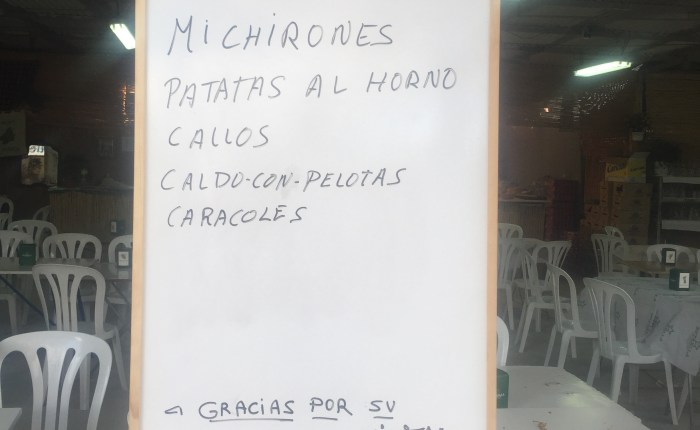 MICHIRONES
PATATAS AL HORNO
CALLOS
CALDO-CON-PELOTAS
CARACOLES
GRACIAS POR SU